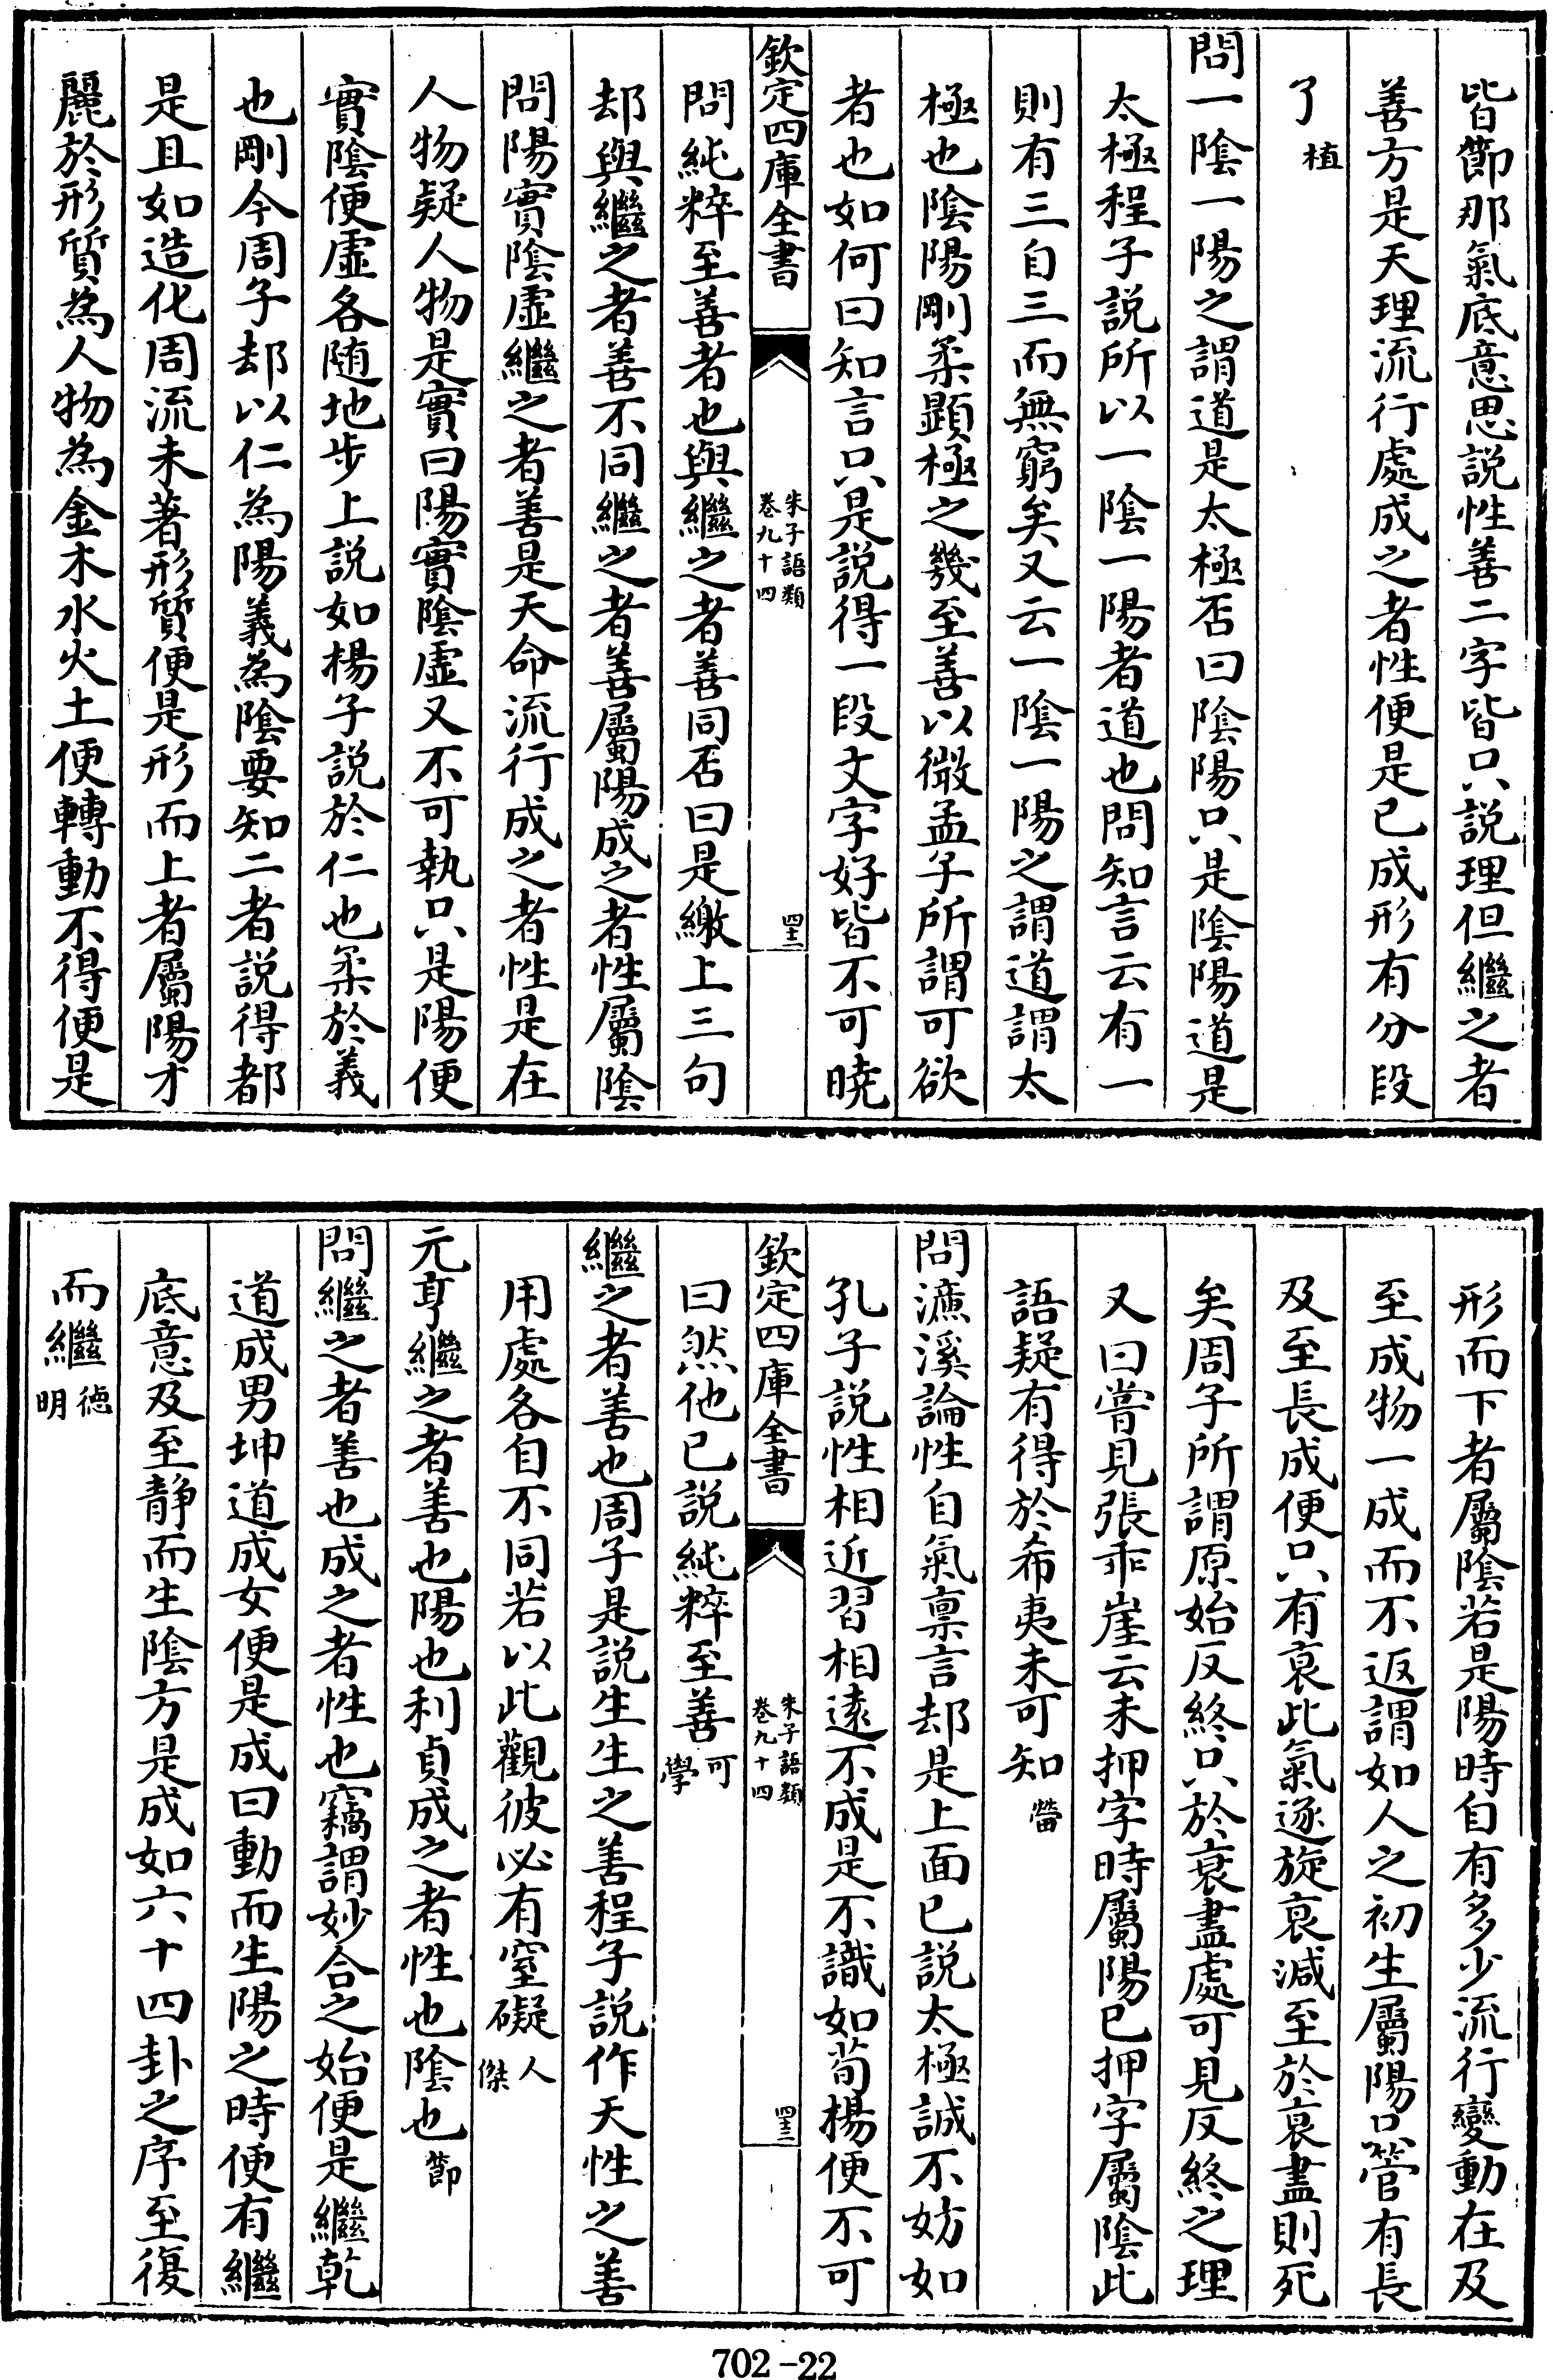 皆節那氣底意思説性善二字皆只説理但繼之者
善方是天理流行處成之者性便是已成形有分段
了植
問一隂一陽之謂道是太極否曰隂陽只是隂陽道是
太極程子説所以一隂一陽者道也問知言云有一
則有三自三而無窮矣又云一隂一陽之謂道謂太
極也隂陽剛柔顯極之幾至善以微孟子所謂可欲
者也如何曰知言只是説得一段文字好皆不可曉
欽定四庫全書
朱子語類
卷九十四
四十二
問純粹至善者也與繼之者善同否曰是繳上三句
却與繼之者善不同繼之者善屬陽成之者性屬隂
問陽實隂虛繼之者善是天命流行成之者性是在
人物疑人物是實曰陽實隂虛又不可執只是陽便
實隂便虛各随地步上説如楊子説於仁也柔於義
也剛今周子却以仁為陽義為隂要知二者説得都
是且如造化周流未著形質便是形而上者屬陽才
麗於形質為人物為金木水火土便轉動不得便是
形而下者屬隂若是陽時自有多少流行變動在及
至成物一成而不返謂如人之初生屬陽只管有長
及至長成便只有衰此氣逐旋衰減至於衰盡則死
矣周子所謂原始反終只於衰盡處可見反終之理
又曰嘗見張乖崖云未押字時屬陽已押字屬隂此
語疑有得於希夷未可知㽦
問濂溪論性自氣禀言却是上面已説太極誠不妨如
孔子説性相近習相逺不成是不識如荀楊便不可
欽定四庫全書
朱子語類
卷九十四
四十三
曰然他已説純粹至善可學
繼之者善也周子是説生生之善程子説作天性之善
用處各自不同若以此觀彼必有窒礙人傑
元亨繼之者善也陽也利貞成之者性也隂也節
問繼之者善也成之者性也竊謂妙合之始便是繼乾
道成男坤道成女便是成曰動而生陽之時便有繼
底意及至靜而生隂方是成如六十四卦之序至復
而繼德明
702-22